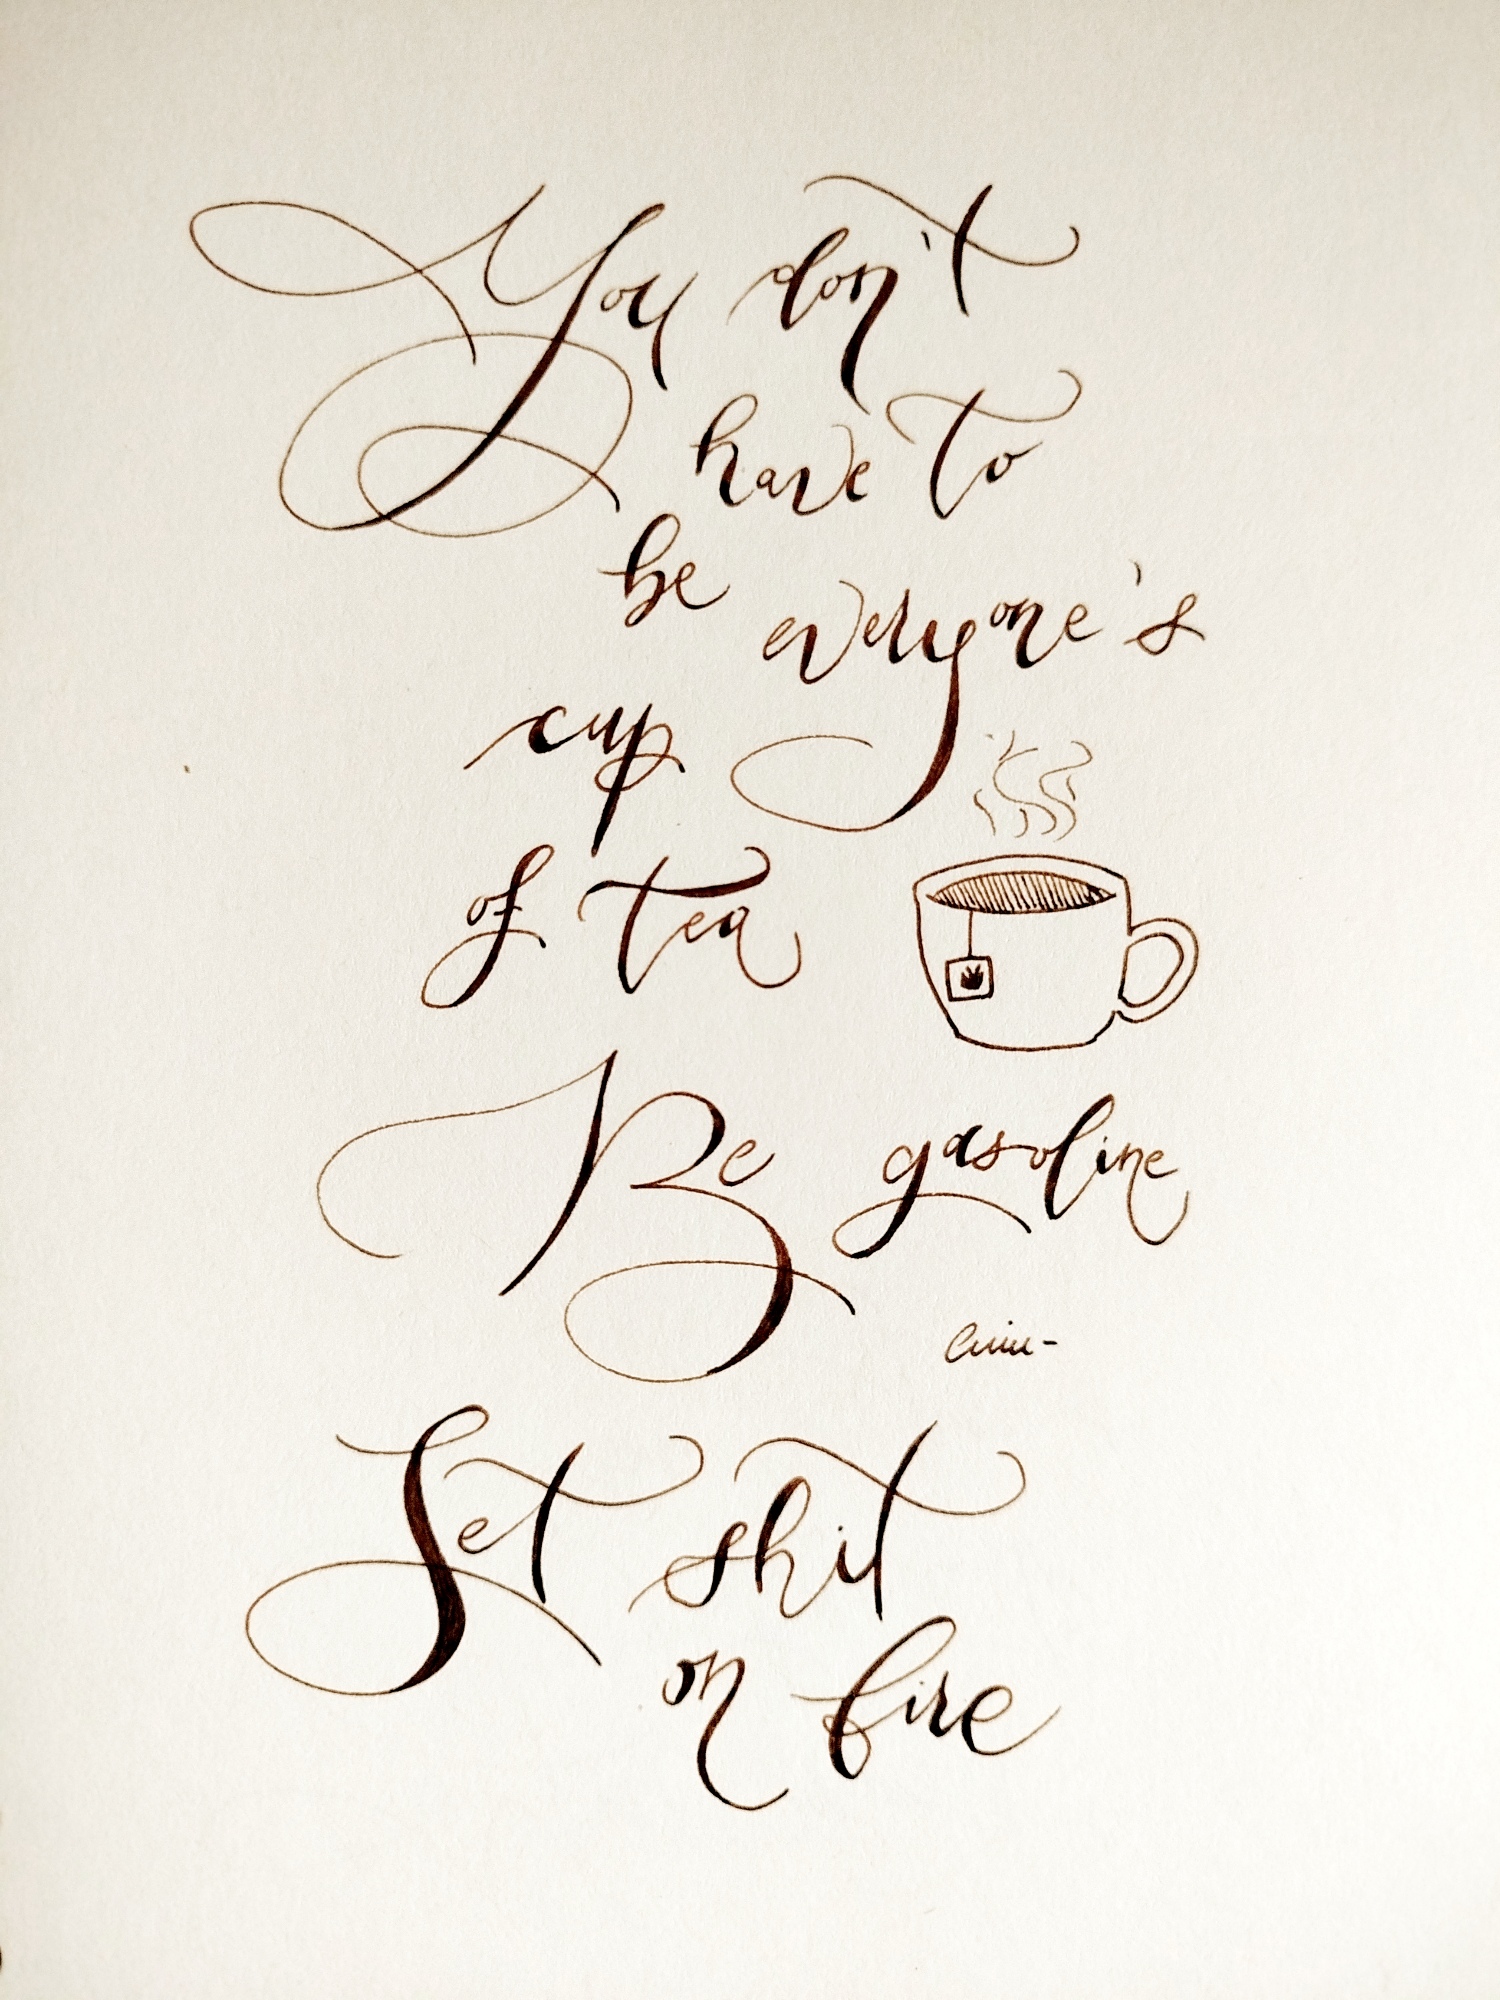 You don't
have to
be everyone's
cup
of tea
Be gasoline
Set shit
on fire